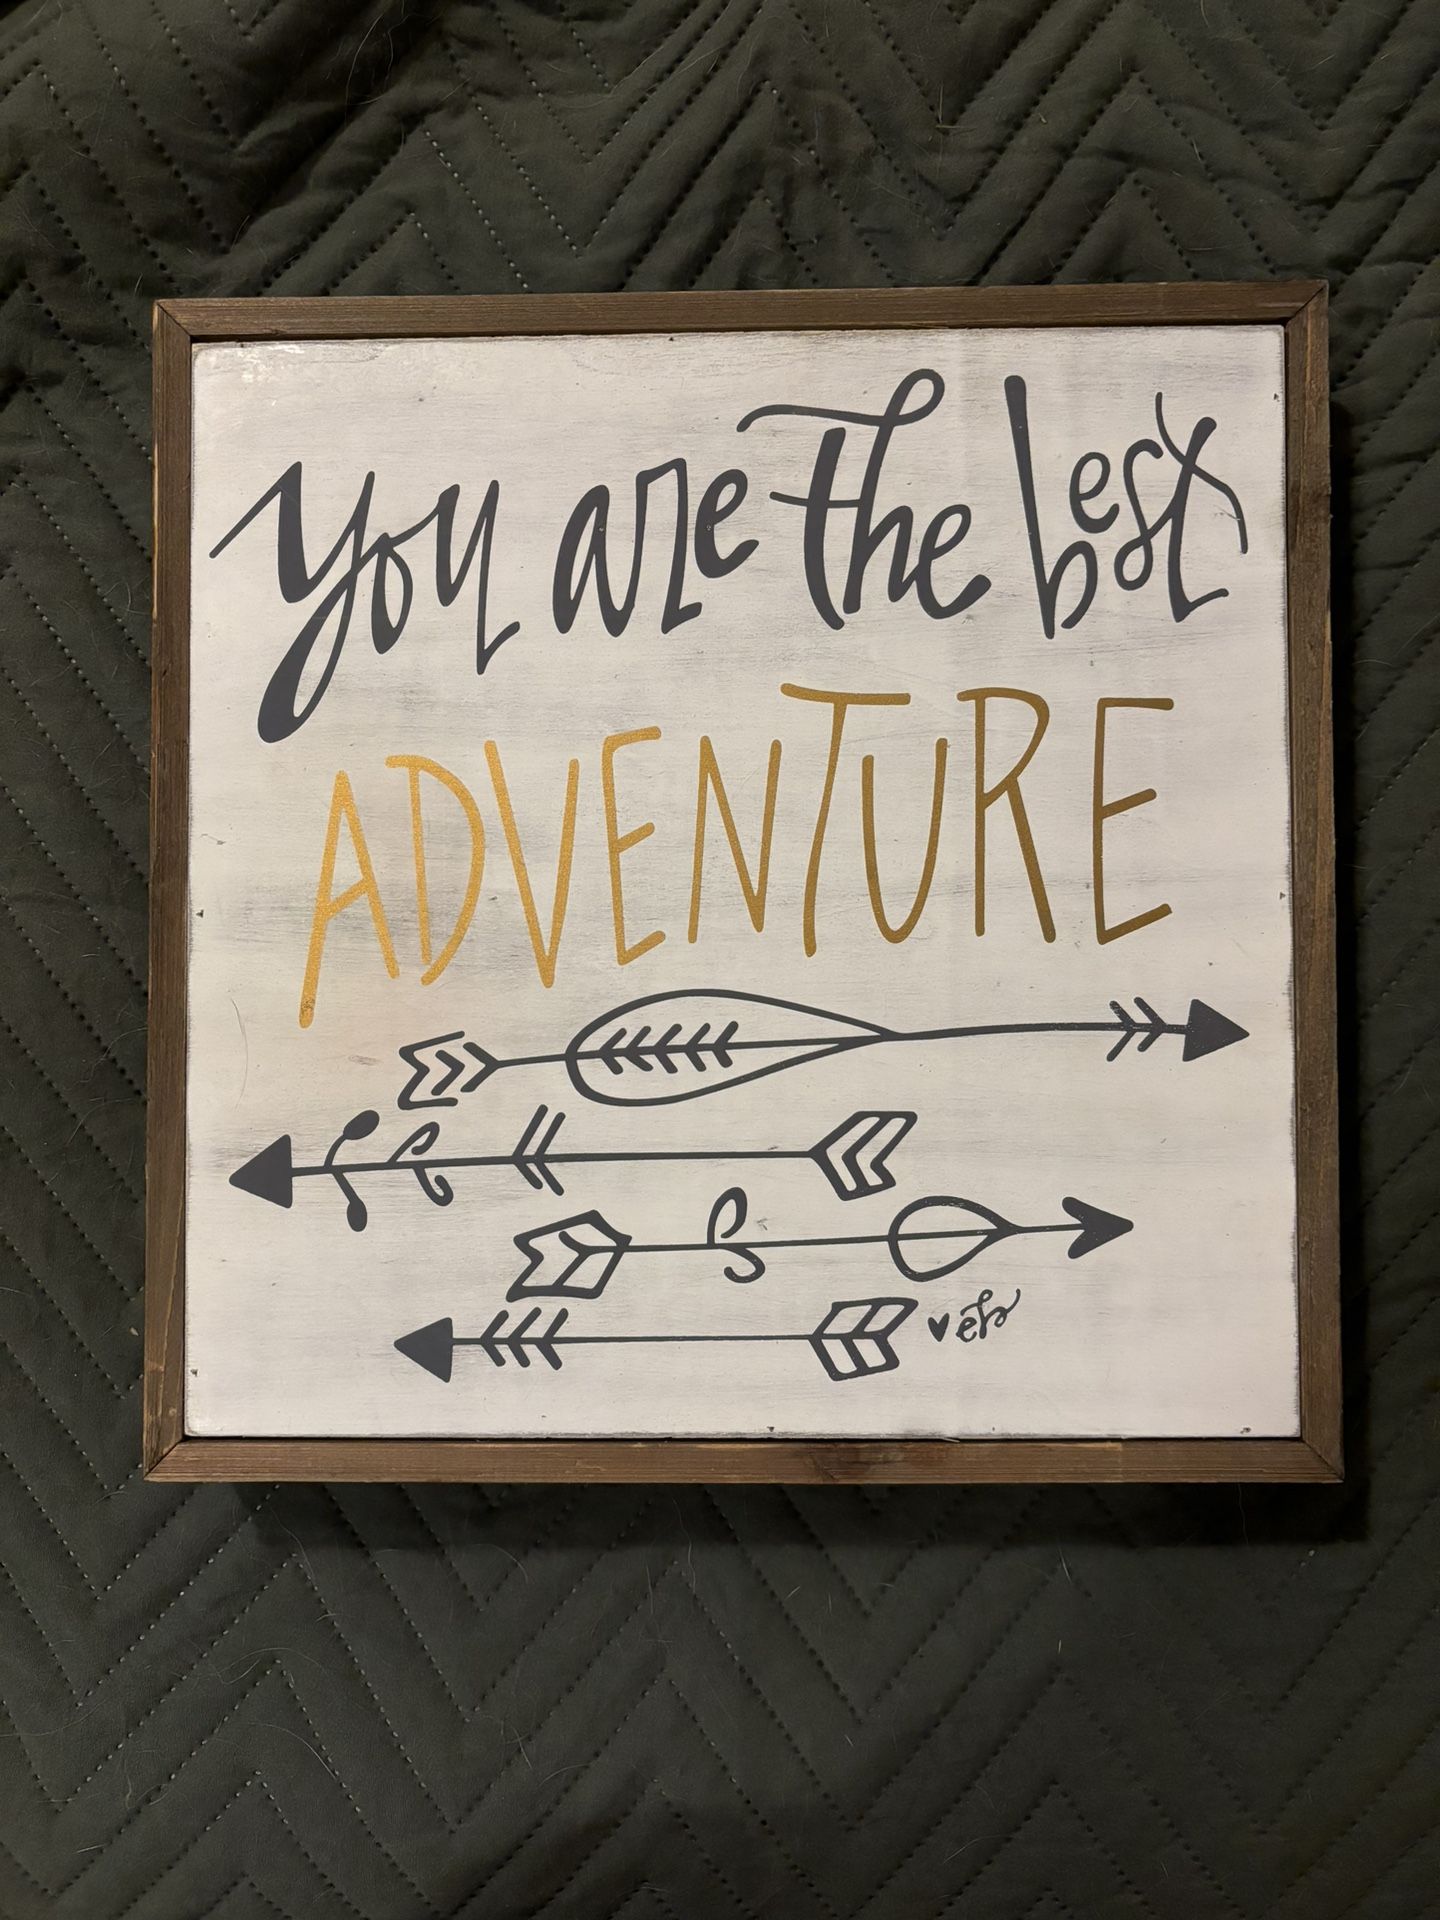 You are the best
ADVENTURE